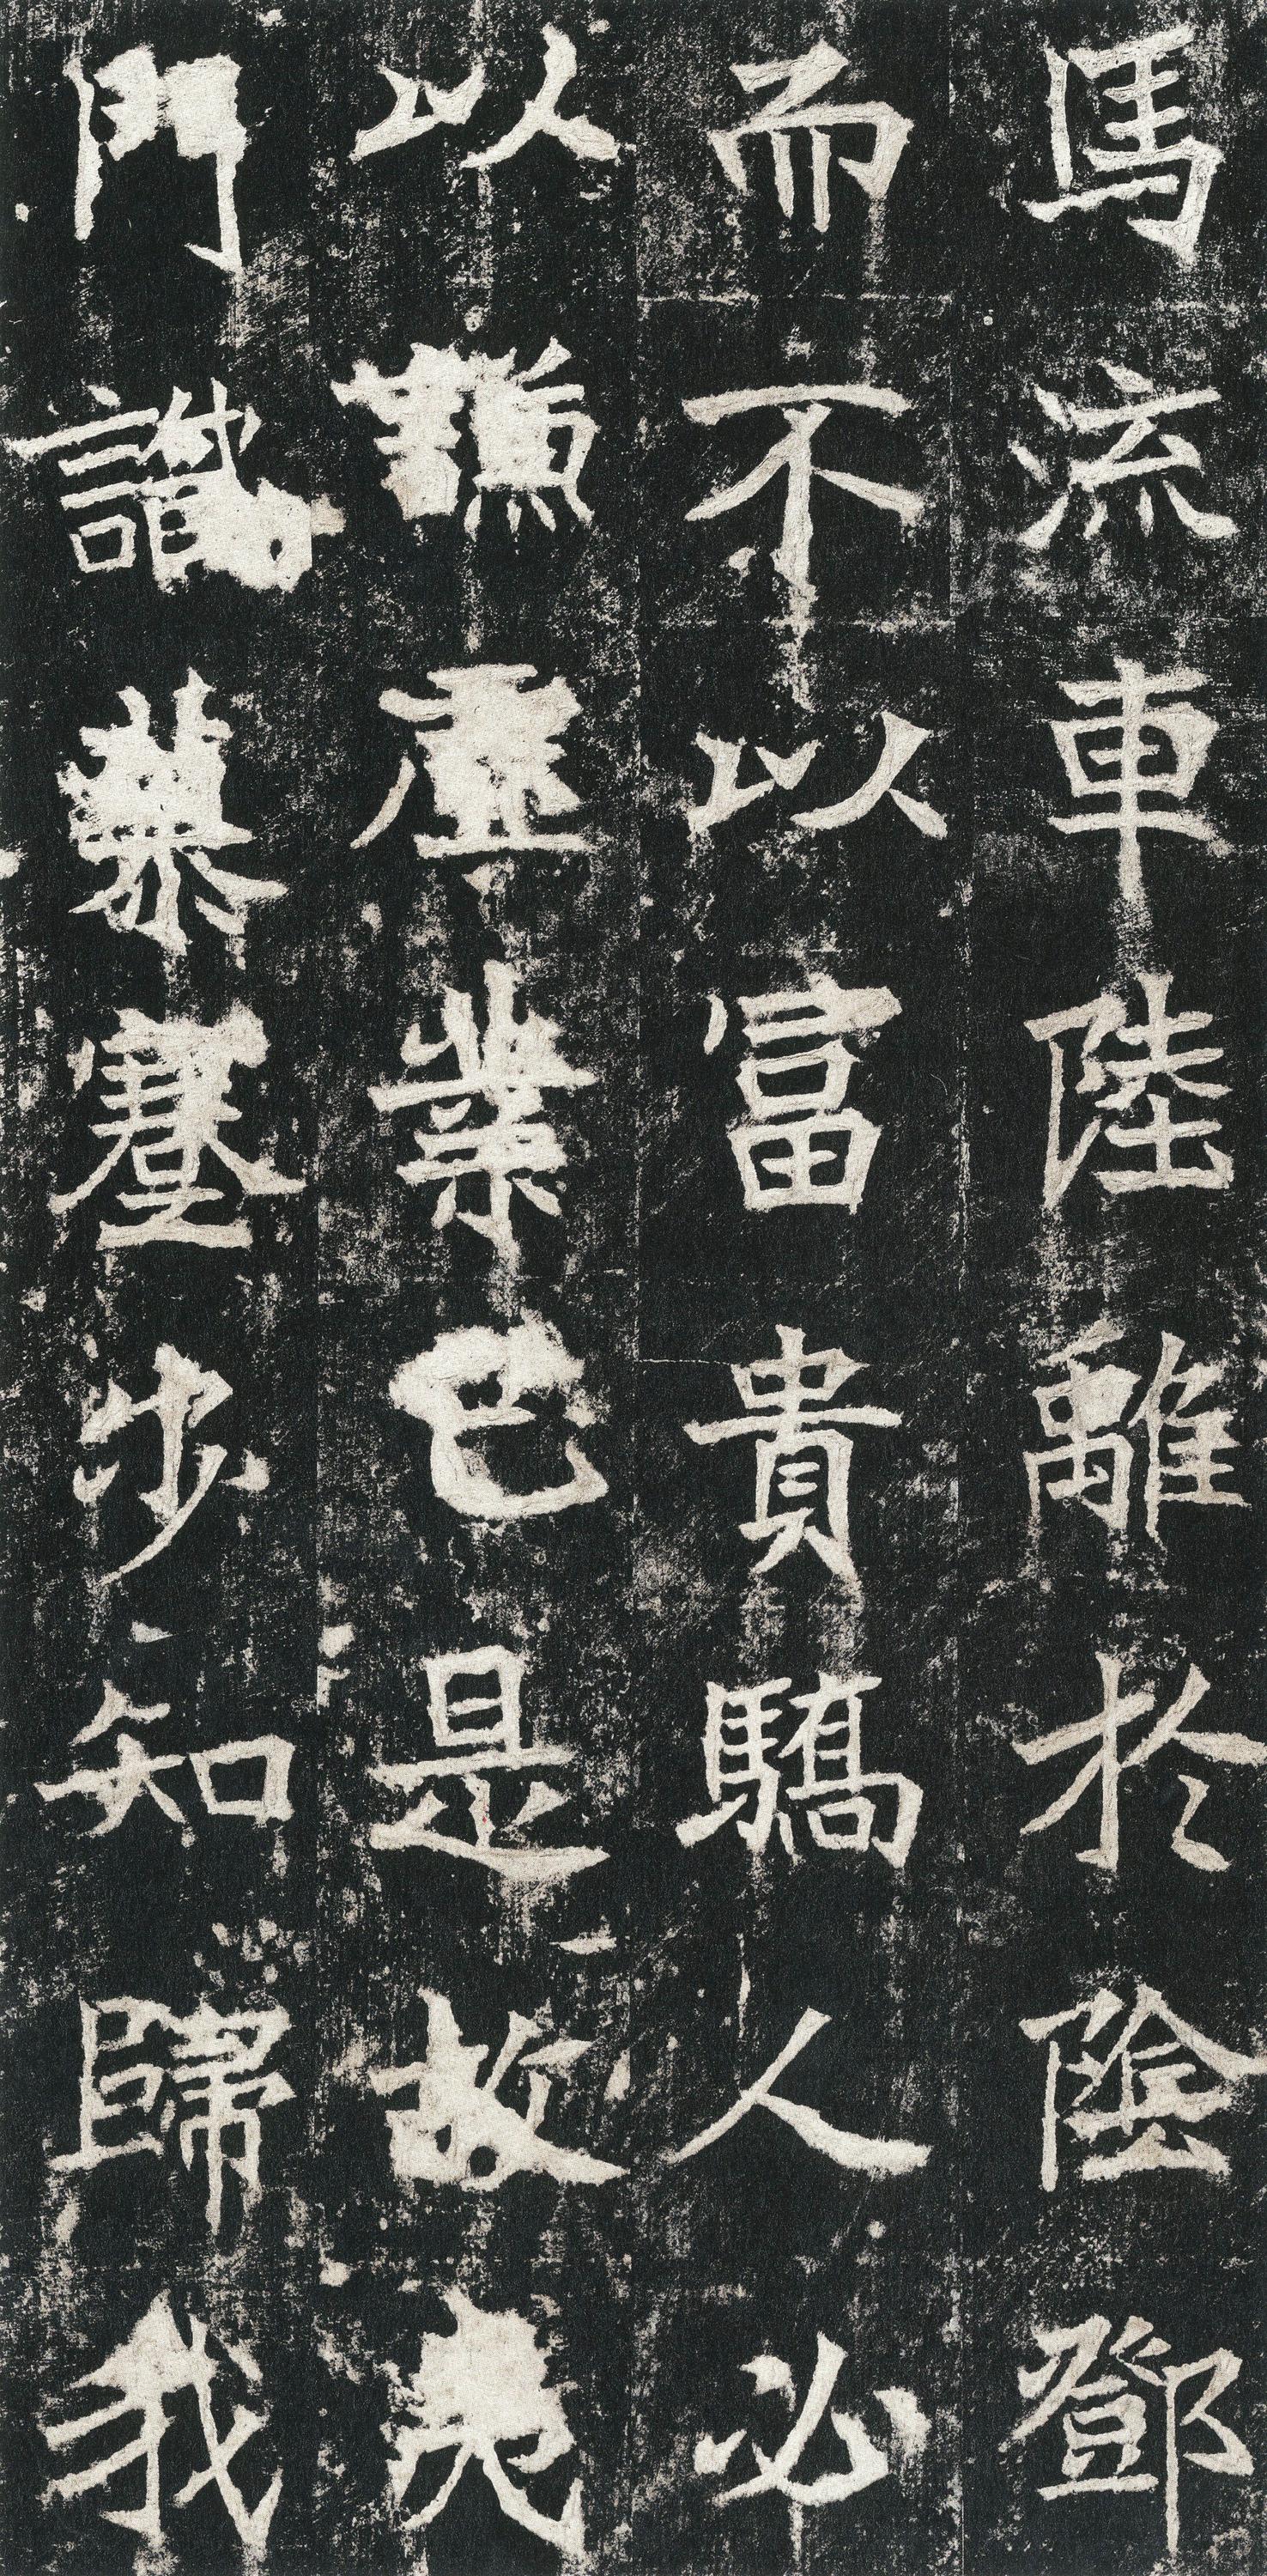 馬流車陸離於陰鄧
而不以富貴驕人必
以謙虛業己是故夷
門識慕蹇步知歸我